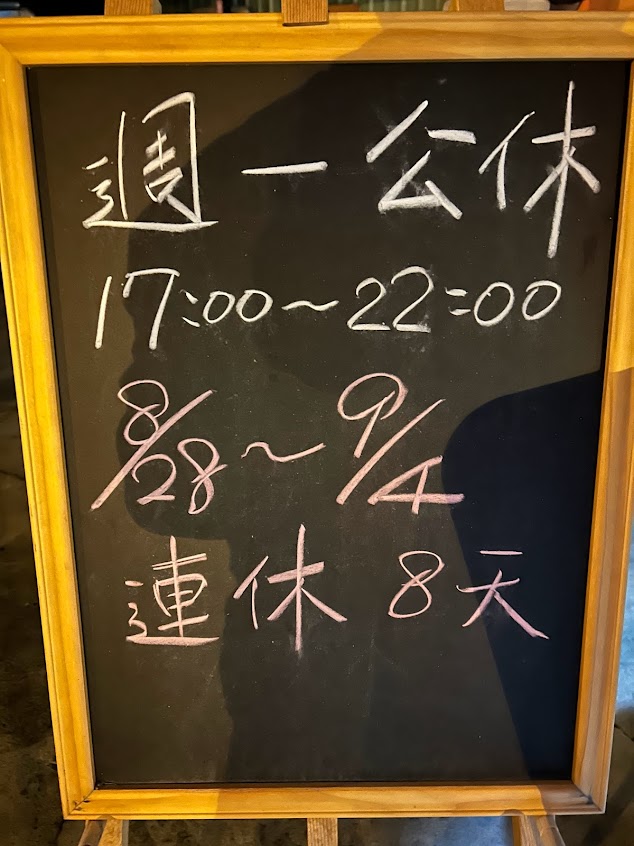 週一公休
17:00~22:00
8/28~9/4
連休 8天